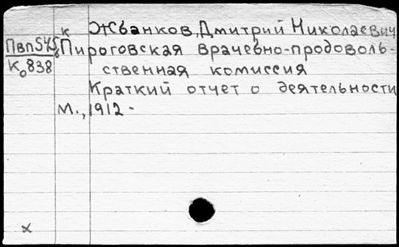 к Жбанков, Дмитрий Николаевич
Пироговская врачебно-продоволь-
ственная комиссия
Краткий отчет о деятельности
М., 1912-
К₀838
х